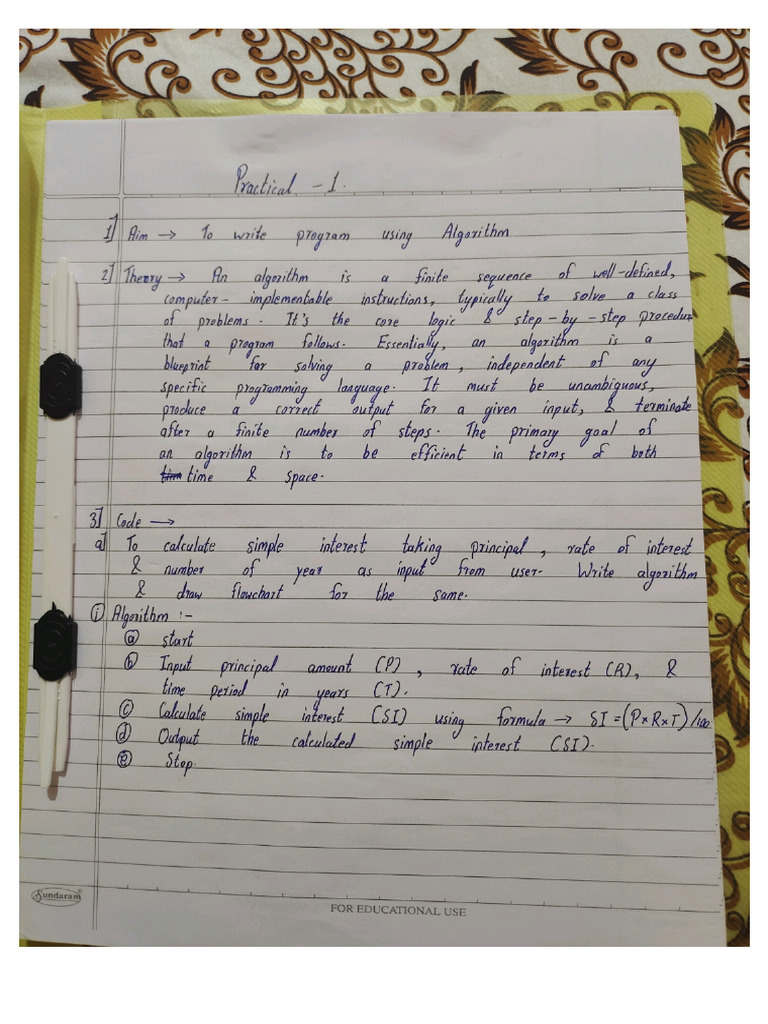 Practical - 1.
1] Aim → To write program using Algorithm
2] Theory → An algorithm is a finite sequence of well-defined,
computer- implementable instructions, typically to solve a class
of problems. It's the core logic & step-by-step procedure
that a program follows. Essentially, an algorithm is a
blueprint for solving a problem, independent of any
specific programming language. It must be unambiguous,
produce a correct output for a given input, & terminate
after a finite number of steps. The primary goal of
an algorithm is to be efficient in terms of both
tim time & space.
3] Code →
a] To calculate simple interest taking principal, rate of interest
& number of year as input from user. Write algorithm
& draw flowchart for the same.
i Algorithm :-
a start
b Input principal amount (P), rate of interest (R), &
time period in years (T).
c Calculate simple interest (SI) using formula → SI = (P×R×T)/100
d Output the calculated simple interest (SI).
e Stop.
Sundaram®
FOR EDUCATIONAL USE